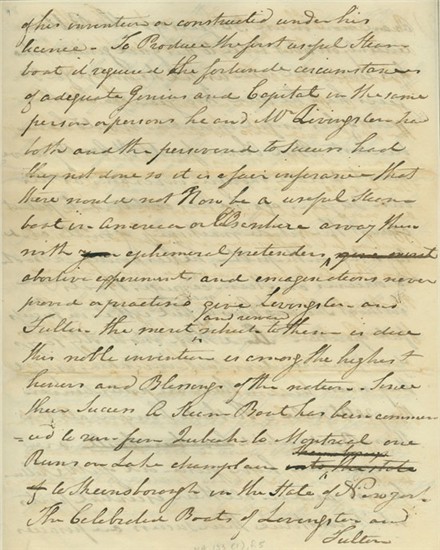 of his invention or constructed under his
licence - To Produce the first useful Steam
boat it required the fortunate circumstances
of adequate Genius and Capital in the same
person or persons he and Mr Livingston had
both and they persevered to success had
they not done so it is a fair inferance that
there would not Now be a useful Steam
boat in America or Elsewhere away then
with ephemeral pretenders,
abortive experiments and imaginations never
proved or practised give Livingston and
and reward
Fulton the merit which to them is due
this noble invention is among the highest
honors and Blessings of the nation. Since
their Success A Steam Boat has been commen
=ced to run from Quebeck to Montreal one
Runs on Lake champlain
to Skeensborough in the State of New york
The Celebrated Boats of Livingston and
Fulton